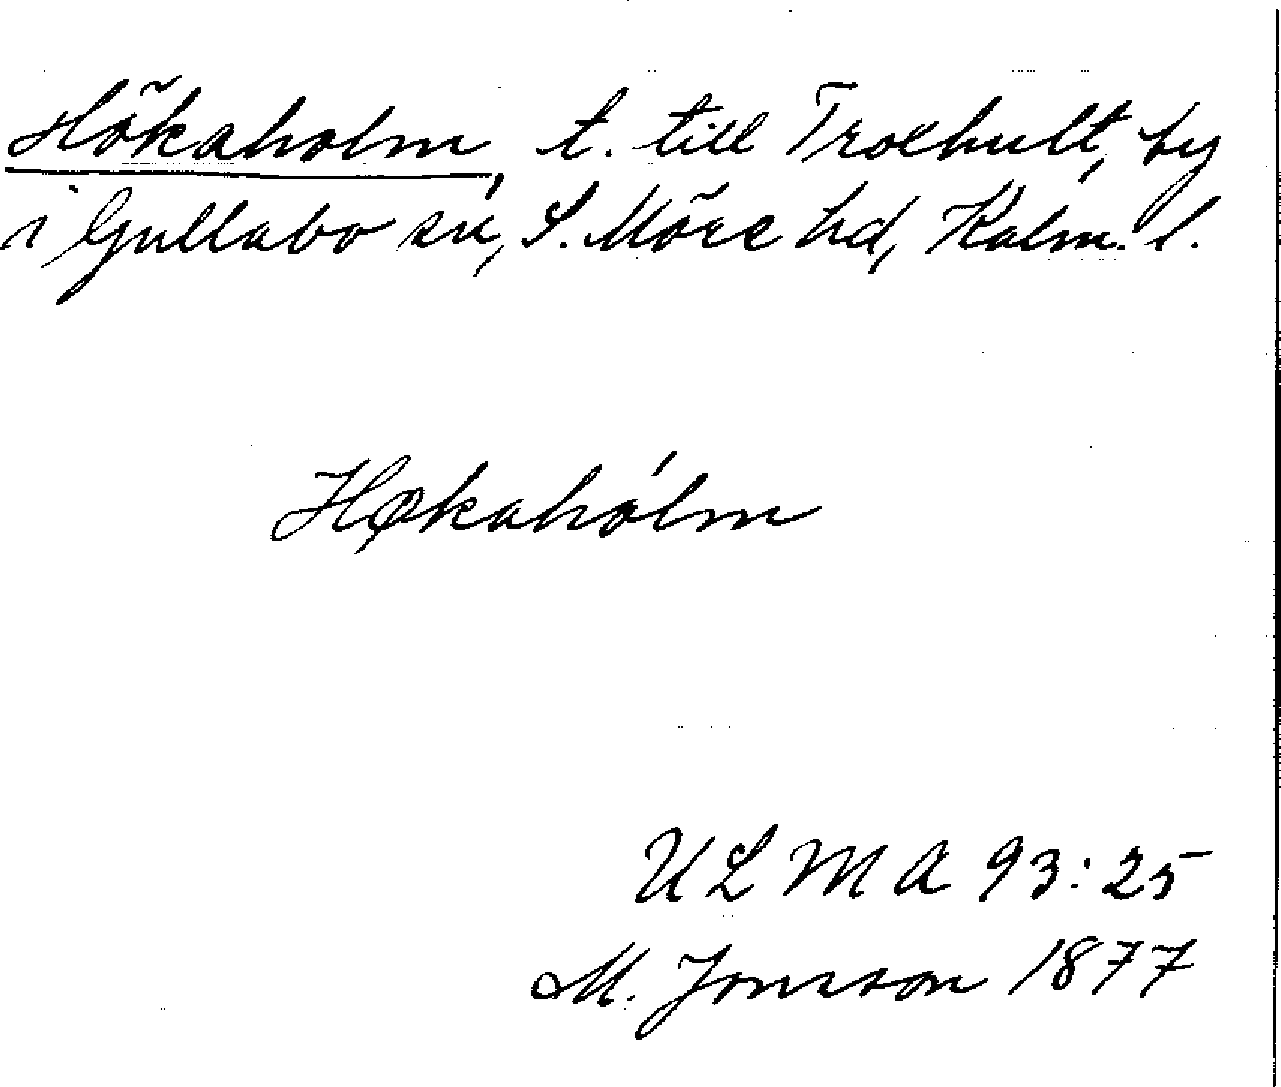 Hökaholm, t. till Troehult, by
i Gullabo sn, S. Möre hd, Kalm. l.
Høkahólm
ULMA 93:25
M. Jonsson 1877